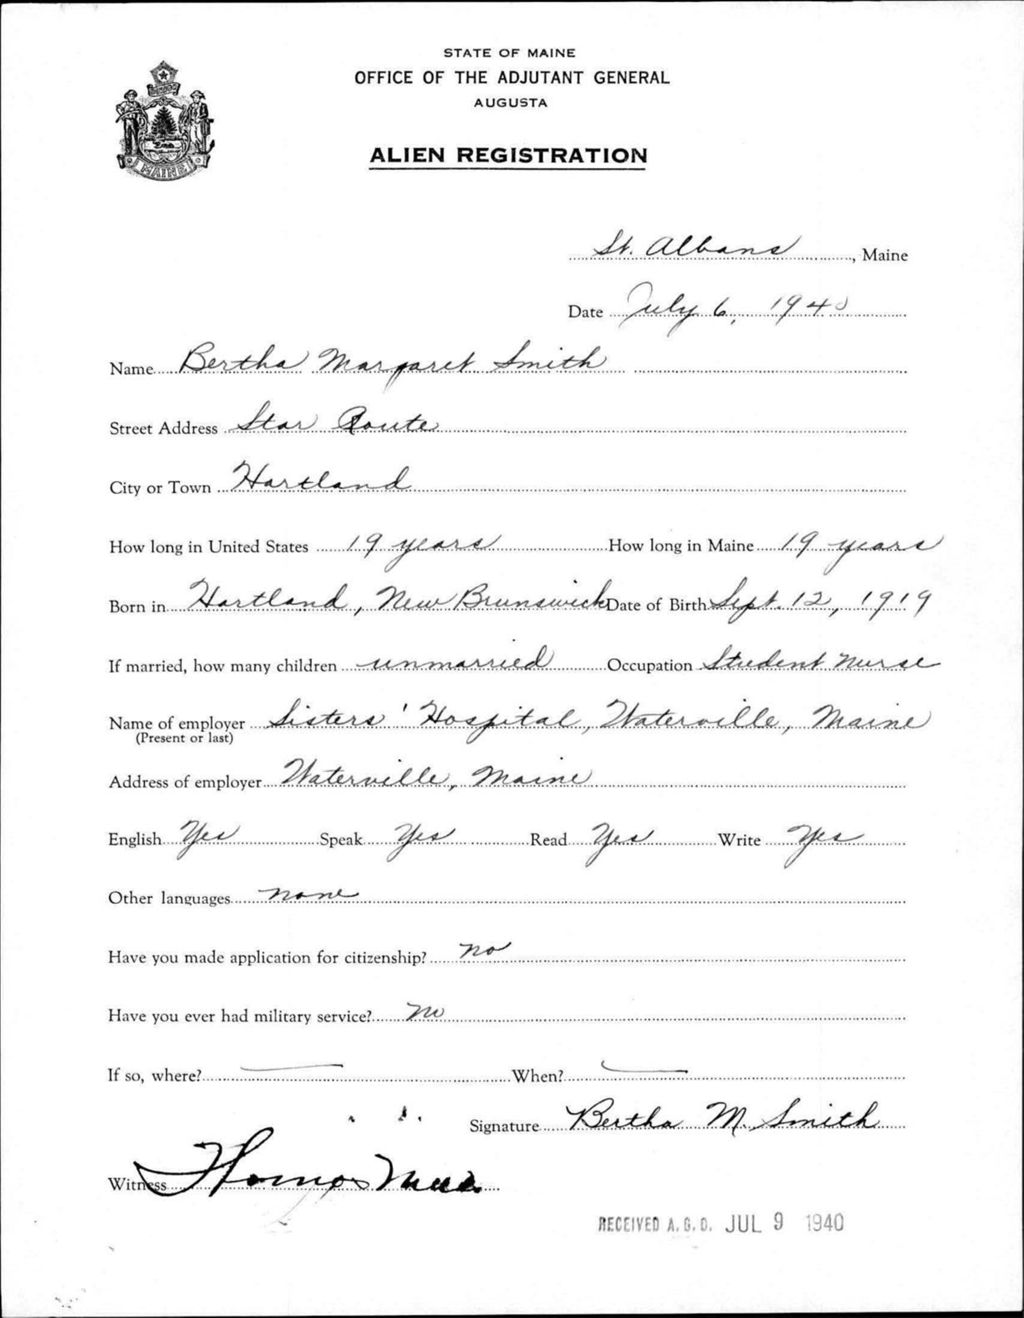 STATE OF MAINE
OFFICE OF THE ADJUTANT GENERAL
AUGUSTA
MAINE
ALIEN REGISTRATION
St. Albans, Maine
Date July 6, 1940
Name Bertha Margaret Smith
Street Address Star Route
City or Town Hartland
How long in United States 19 years How long in Maine 19 years
Born in Hartland, New Brunswick Date of Birth Sept. 12, 1919
If married, how many children unmarried Occupation Student Nurse
Name of employer Sisters' Hospital, Waterville, Maine
(Present or last)
Address of employer Waterville, Maine
English Yes Speak Yes Read Yes Write Yes
Other languages none
Have you made application for citizenship? No
Have you ever had military service? No
If so, where? — When? —
Signature Bertha M. Smith
Witness Thomas
RECEIVED A.G.O. JUL 9 1940